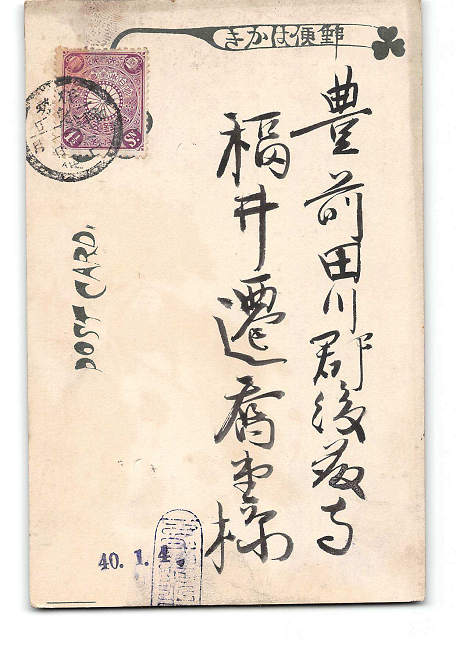 郵便はかき
豊前田川郡後藤寺
福井遷喬堂様
POST CARD.
40.1.4